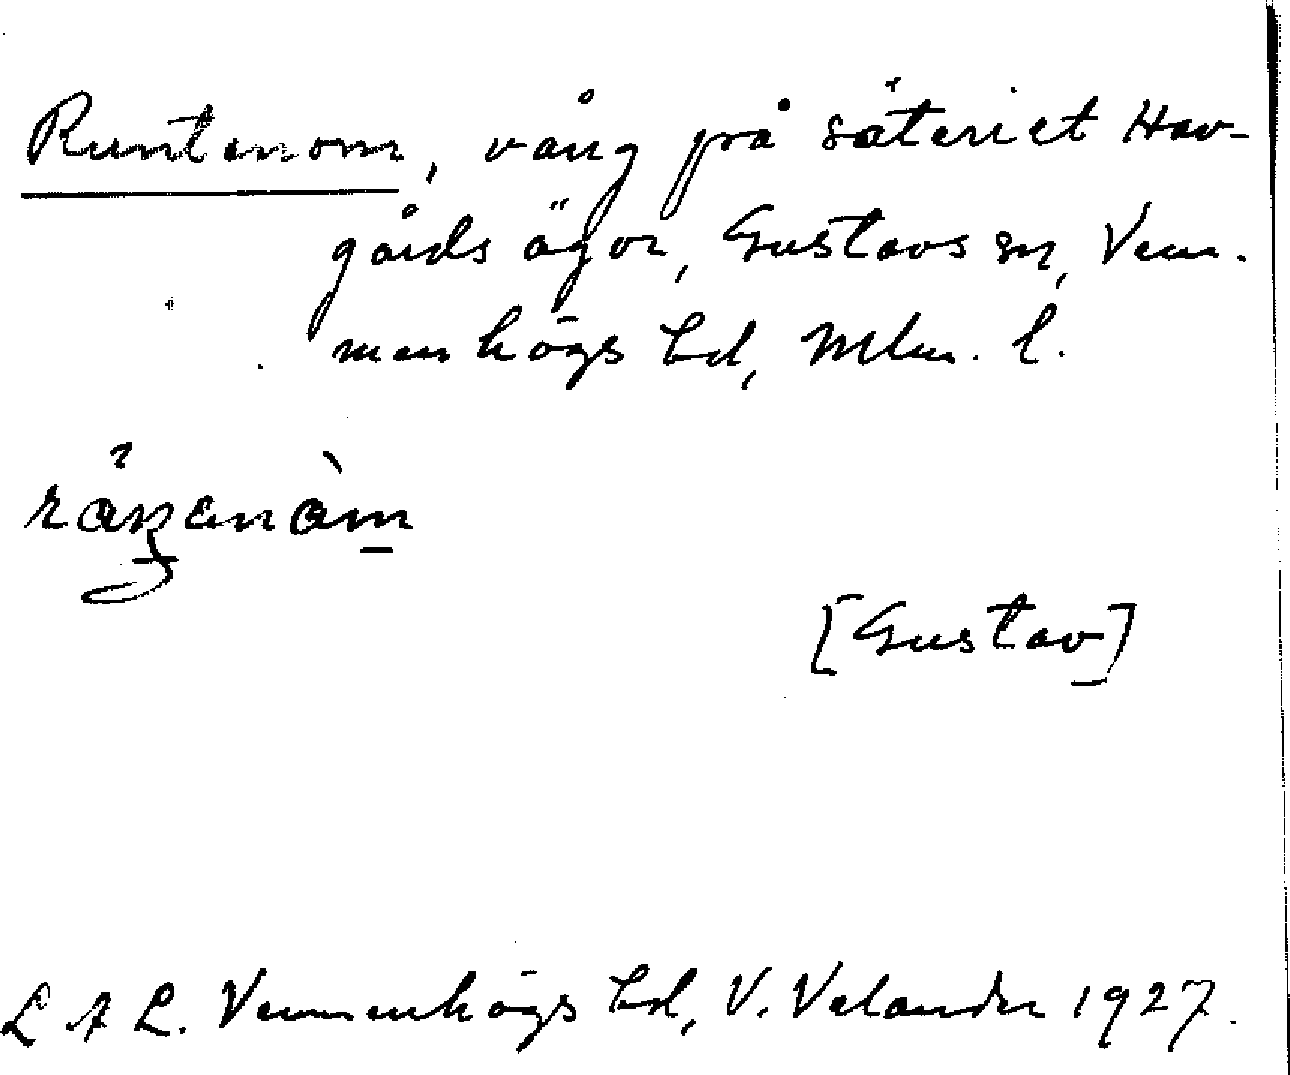 Runtenom, vång på säteriet Hav-
gårds ägor, Gustavs sn, Vem-
menhögs hd, Mlm. l.
[Gustav]
L A L. Vemmenhögs hd, V. Velander 1927.